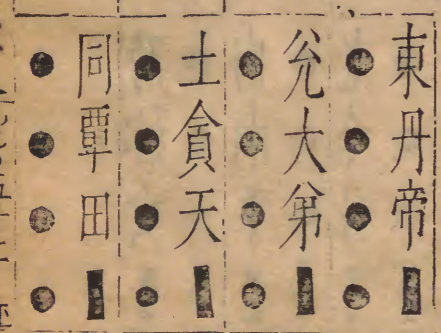 東丹帝■
●●●●
兊大弟■
●●●●
土貪天■
●●●●
同覃田■
●●●●